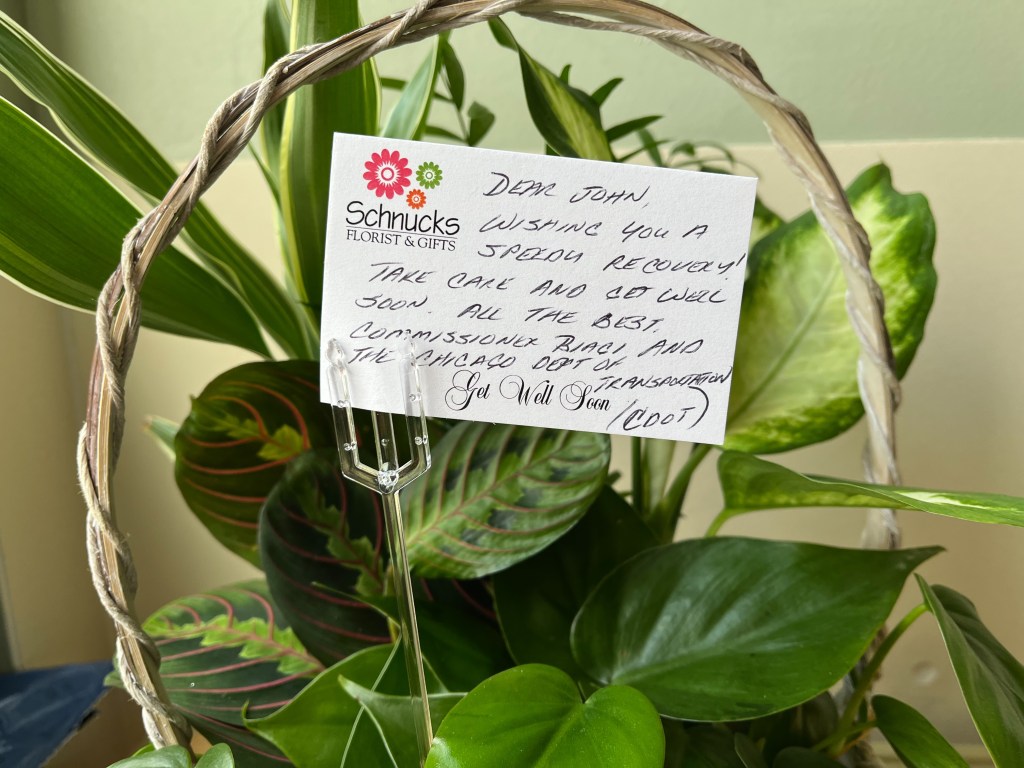 Schnucks
FLORIST & GIFTS
DEAR JOHN,
WISHING YOU A
SPEEDY RECOVERY!
TAKE CARE AND GET WELL
SOON. ALL THE BEST,
COMMISSIONER BIAGI AND
THE CHICAGO DEPT OF
TRANSPORTATION
(CDOT)
Get Well Soon